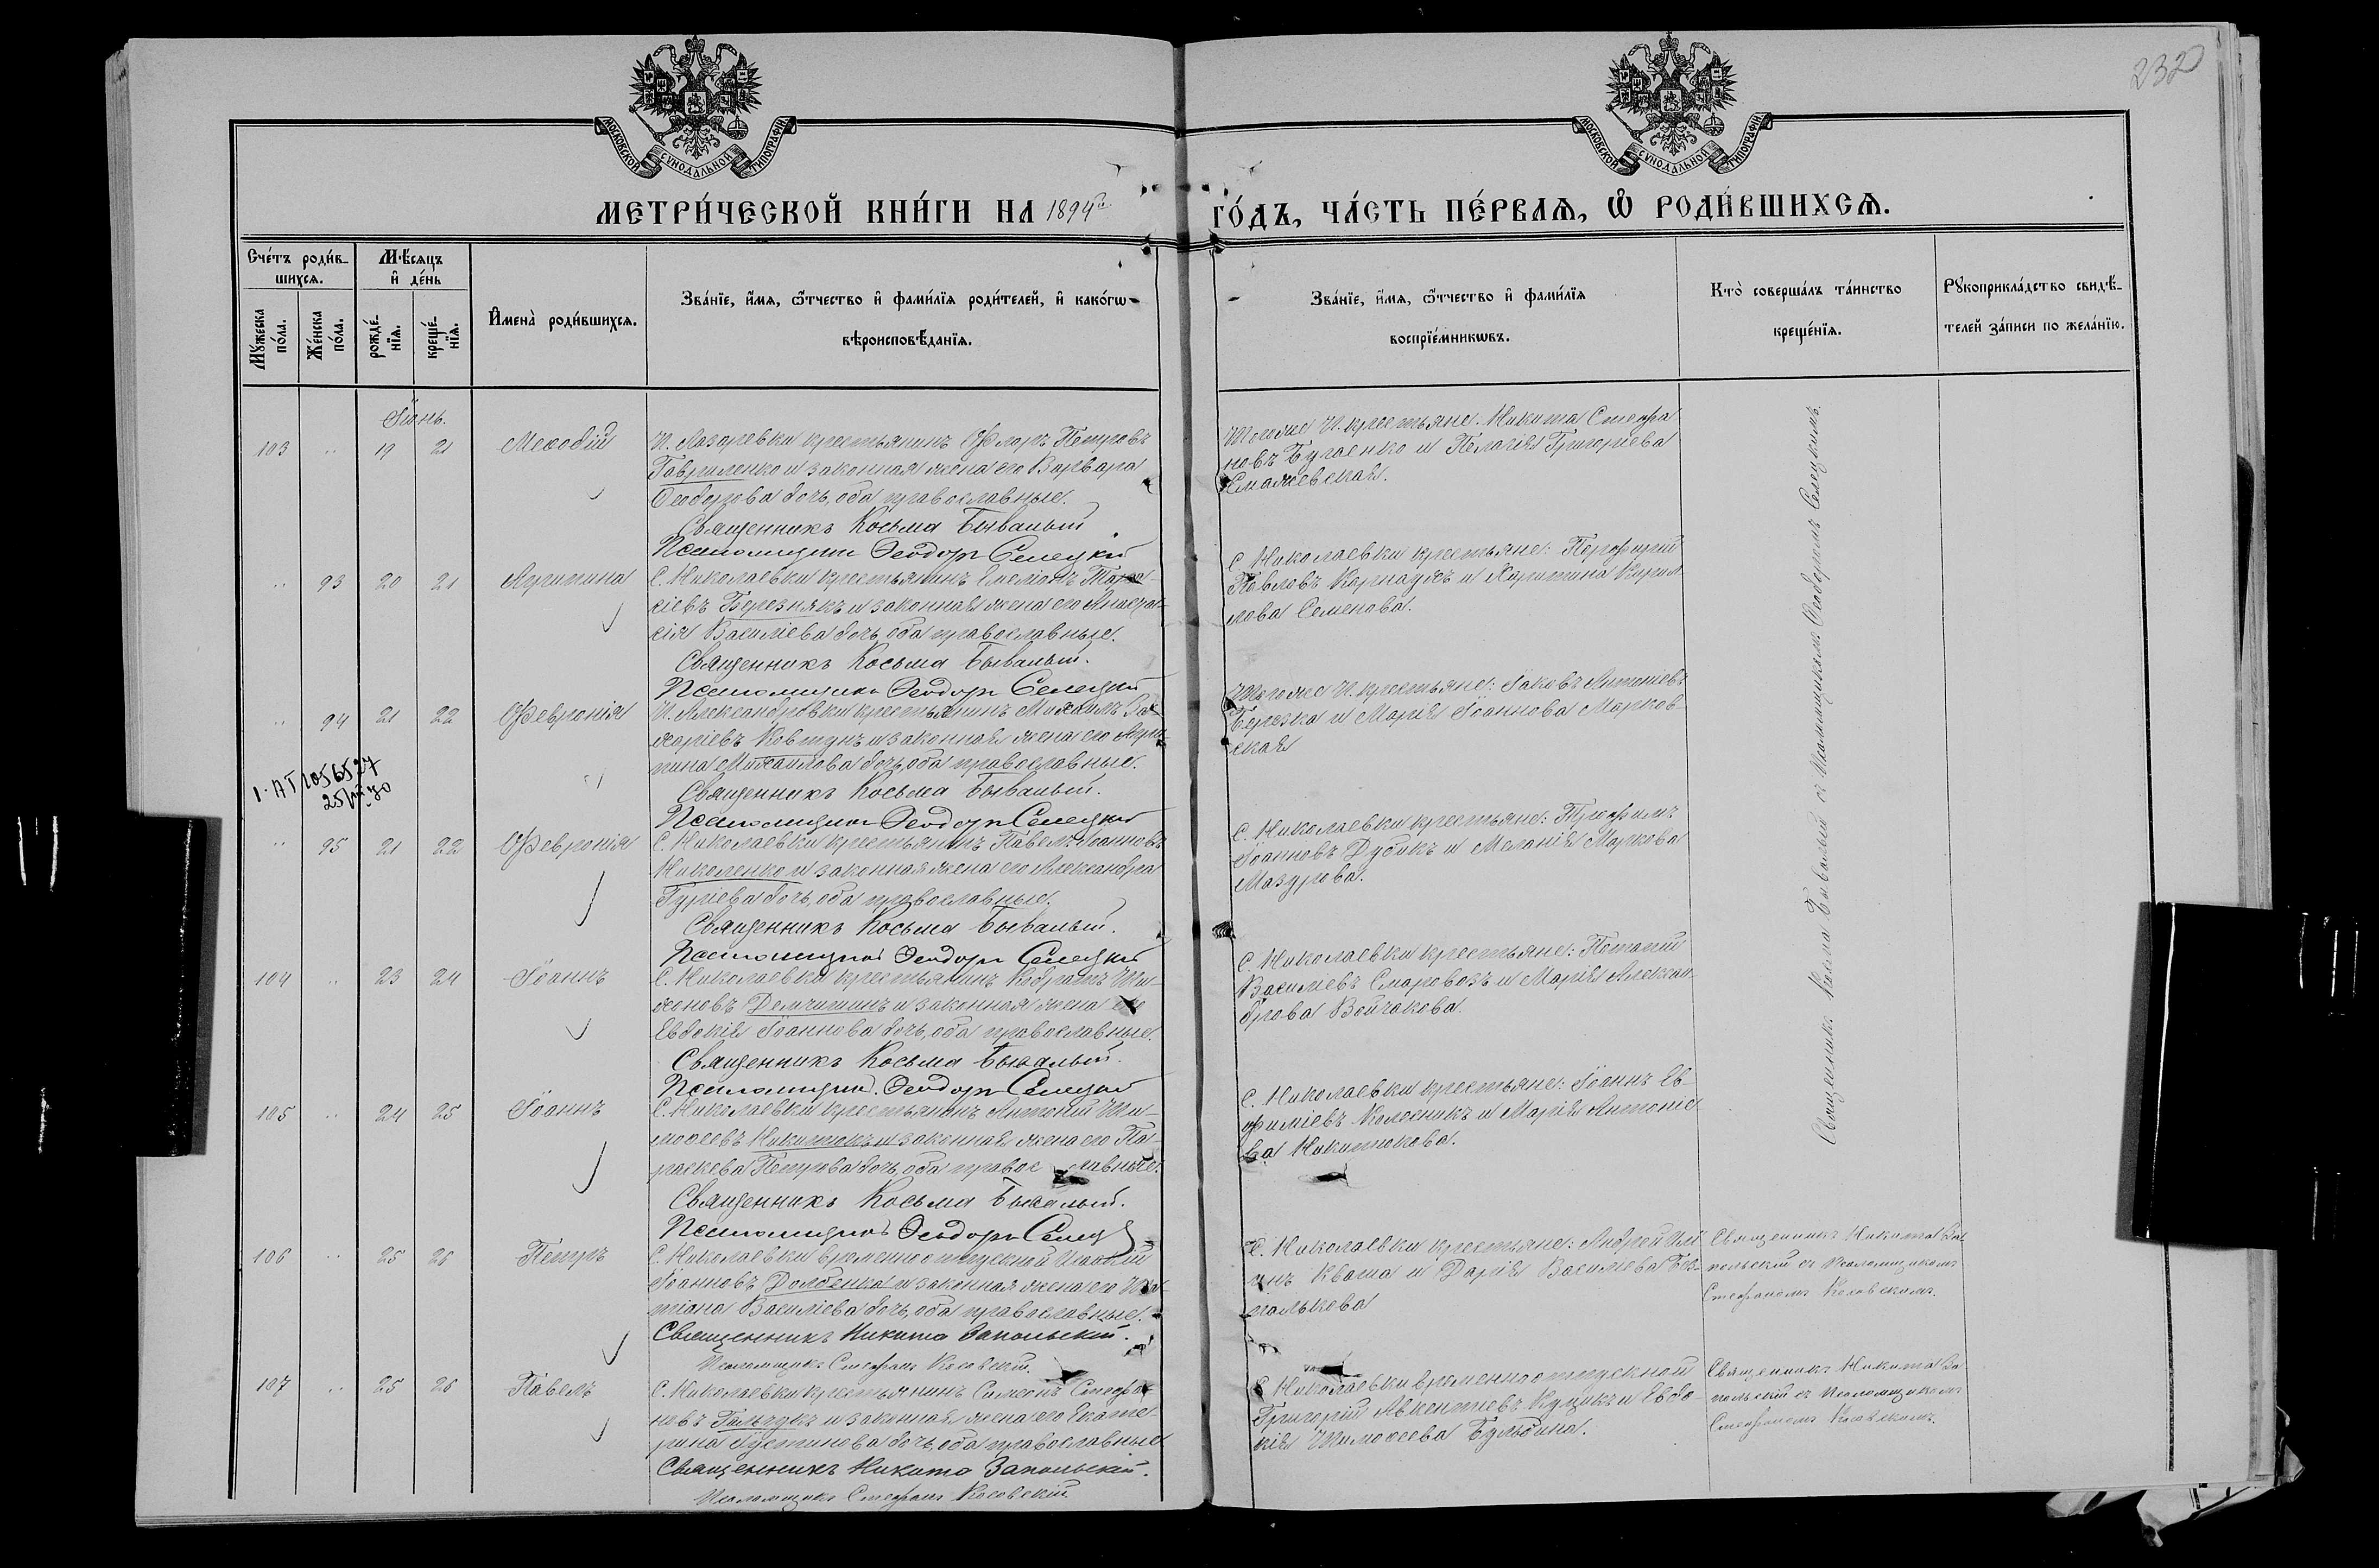 232
МОСКОВСКОЙ СѴНОДАЛЬНОЙ ТИПОГРАФІИ
МОСКОВСКОЙ СѴНОДАЛЬНОЙ ТИПОГРАФІИ
МЕТРИ́ЧЕСКОЙ КНИ́ГИ НА 1894й ГО́ДЪ, ЧА́СТЬ ПЕ́РВАѦ, Ѡ҆ РОДИ́ВШИХСѦ.
Сче́тъ роди́в-
шихсѧ.
Мꙋ́жеска по́ла.
Же́нска по́ла.
Мѣ́сѧцъ
и҆ де́нь
рожде́-
нїѧ.
креще́-
нїѧ.
И҆мена̀ роди́вшихсѧ.
Зва́нїе, и҆́мѧ, ѻ҆́тчество и҆ фами́лїѧ роди́телей, и҆ како́гѡ
вѣроисповѣ́данїѧ.
Зва́нїе, и҆́мѧ, ѻ҆́тчество и҆ фами́лїѧ
воспрїе́мникѡвъ.
Кто̀ соверша́лъ та́инство
креще́нїѧ.
Рꙋкоприкла́дство свидѣ́-
телей за́писи по жела́нїю.
Іюнь.
103 .. 19 21 Меѳодій
П. Лазаревки крестьянинъ Флоръ Петровъ
Гавриленко и законная жена его Варвара
Ѳеодорова дочь, оба православные.
Священникъ Косьма Бывалый
Псаломщикъ Ѳеодоръ Селецкій
Тогоже П. крестьяне: Никита Стефа
новъ Бугаенко и Пелагія Григоріева
.. 93 20 21 Агрипина
С. Николаевки крестьянинъ Симеонъ Тара-
сіевъ Березнякъ и законная жена его Анаста-
сія Василіева дочь, оба православные.
Священникъ Косьма Бывалый.
Псаломщикъ Ѳеодоръ Селецкій
С. Николаевки крестьяне: Порфирій
Павловъ Карнаухъ и Харитина Кирил-
лова Семенова.
.. 94 21 22 Февронія
П. Александровки крестьянинъ Михаилъ За-
харіевъ Ковтунъ и законная жена его Агри-
пина Михаилова дочь, оба православные.
Священникъ Косьма Бывалый.
Псаломщикъ Ѳеодоръ Селецкій
Тогоже П. крестьяне: Іаковъ Антоніевъ
Березка и Марія Іоаннова Марков-
ская
.. 95 21 22 Февронія
С. Николаевки крестьянинъ Павелъ Іоанновъ
Николенко и законная жена его Александра
Гуріева дочь, оба православные.
Священникъ Косьма Бывалый.
Псаломщикъ Ѳеодоръ Селецкій
С. Николаевки крестьяне: Трофимъ
Іоанновъ Дубикъ и Меланія Маркова
Мазурова.
104 .. 23 24 Іоаннъ
С. Николаевки крестьянинъ Кодратъ Ти-
хоновъ Демчишинъ и законная жена его
Евдокія Іоаннова дочь, оба православные.
Священникъ Косьма Бывалый.
Псаломщикъ Ѳеодоръ Селецкій
С. Николаевки крестьяне: Потапій
Василіевъ Старовозъ и Марія Алексан-
дрова Войчакова.
105 .. 24 25 Іоаннъ
С. Николаевки крестьянинъ Антоній Ти-
моѳеевъ Никитюкъ и законная жена его Па-
раскева Петрова дочь, оба православные.
Священникъ Косьма Бывалый.
Псаломщикъ Ѳеодоръ Селец
С. Николаевки крестьяне: Іоаннъ Ев-
фиміевъ Колесникъ и Марія Антоніе
ва Никитюкова.
Священникъ Косма Бывалый съ Псаломщикомъ Ѳеодоромъ Селецкимъ.
106 .. 25 26 Петръ
С. Николаевки временноотпускной
Іоанновъ Долбенко и законная жена его Та-
тіана Василіева дочь, оба православные.
Священникъ Никита Запольскій.
Псаломщикъ Стефанъ Косовскій.
С. Николаевки крестьяне: Андрей
Кваша и Дарія Василіева Без-
палькова
Священникъ Никита За-
польскій съ Псаломщикомъ
Стефаномъ Косовскимъ.
107 .. 25 26 Павелъ
С. Николаевки крестьянинъ Симеонъ Стефа-
новъ Гальчукъ и законная жена его Екате-
рина Іустинова дочь, оба православные
Священникъ Никита Запольскій.
Псаломщикъ Стефанъ Косовскій.
С. Николаевки временноотпускной
Григорій Авксентіевъ Куцикъ и Евдо-
кія Тимоѳеева Бульбина.
Священникъ Никита За-
польскій съ Псаломщикомъ
Стефаномъ Косовскимъ.